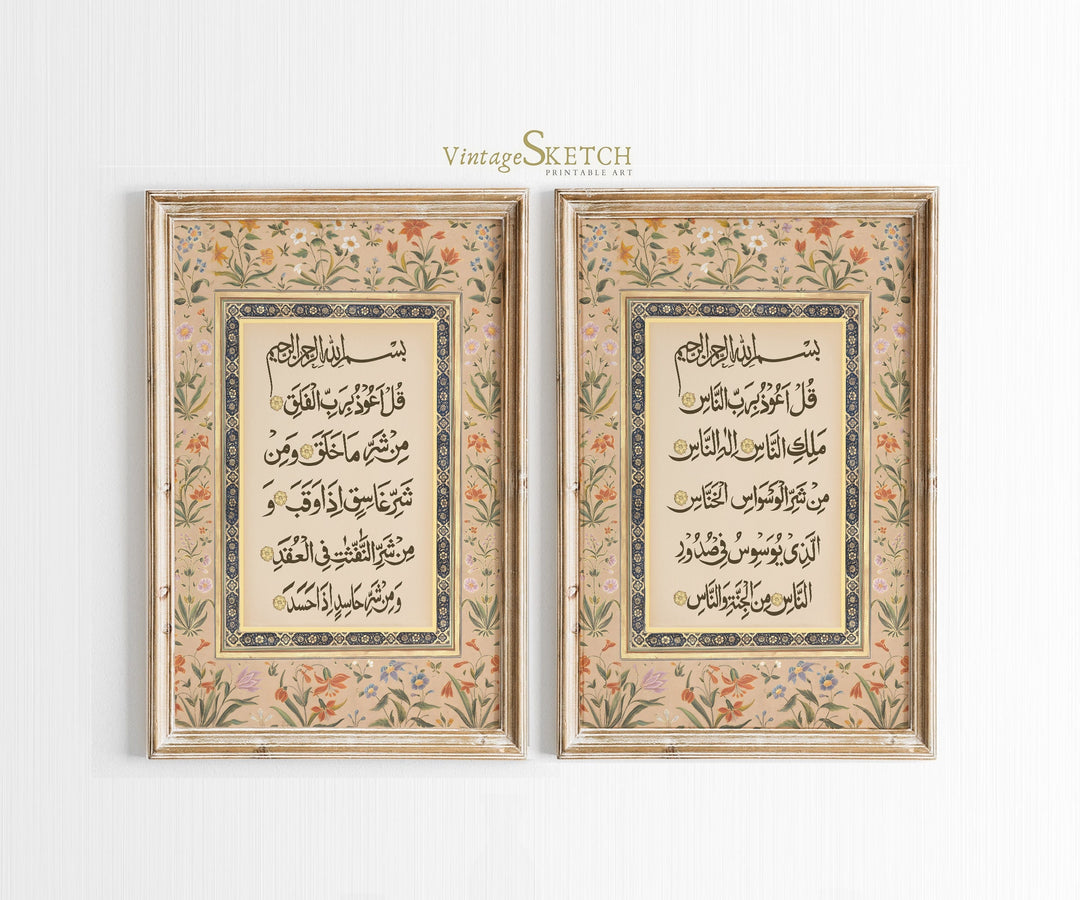 VintageSKETCH
PRINTABLE ART
بسم الله الرحمن الرحيم
قُلْ اَعُوْذُ بِرَبِّ الْفَلَقِ
مِنْ شَرِّ مَا خَلَقَ وَمِنْ
شَرِّ غَاسِقٍ اِذَا وَقَبَ وَ
مِنْ شَرِّ النَّفّٰثٰتِ فِي الْعُقَدِ
وَمِنْ شَرِّ حَاسِدٍ اِذَا حَسَدَ
بسم الله الرحمن الرحيم
قُلْ اَعُوْذُ بِرَبِّ النَّاسِ
مَلِكِ النَّاسِ اِلٰهِ النَّاسِ
مِنْ شَرِّ الْوَسْوَاسِ الْخَنَّاسِ
الَّذِيْ يُوَسْوِسُ فِيْ صُدُوْرِ
النَّاسِ مِنَ الْجِنَّةِ وَالنَّاسِ